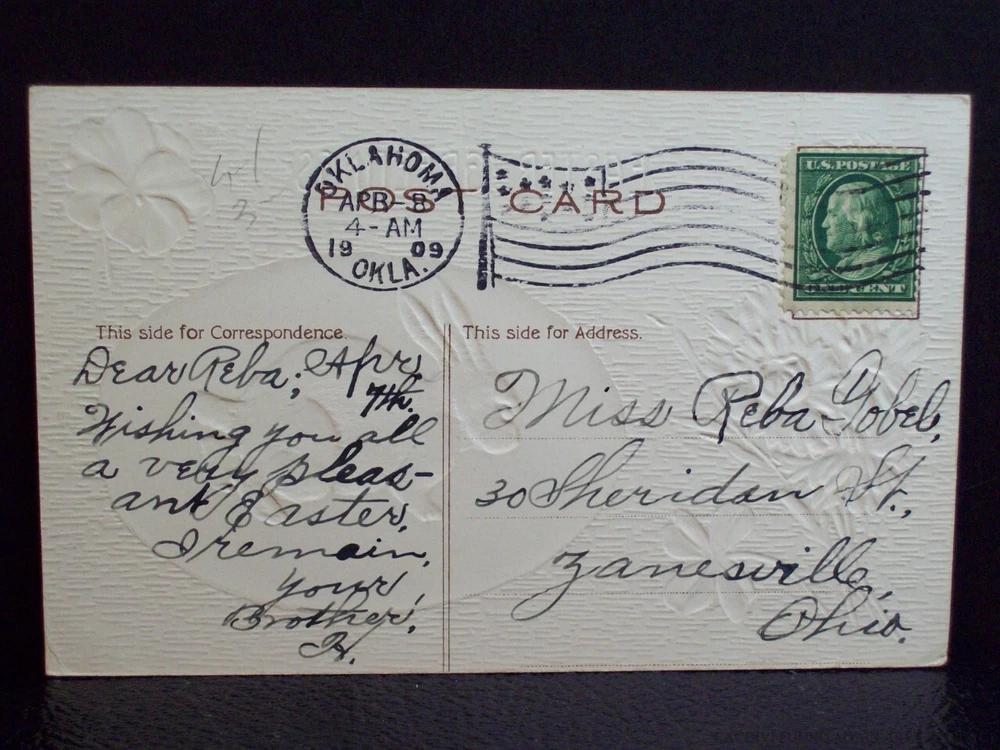 OKLAHOMA
APR-8
4-AM
1909
OKLA.
POST CARD
U.S. POSTAGE
ONE CENT
This side for Correspondence.
Dear Reba; Apr.
7th.
Wishing you all
a very pleas-
ant Easter,
I remain,
your,
Brother,
This side for Address.
Miss Reba Gobel,
30 Sheridan St.,
Zanesville,
Ohio.